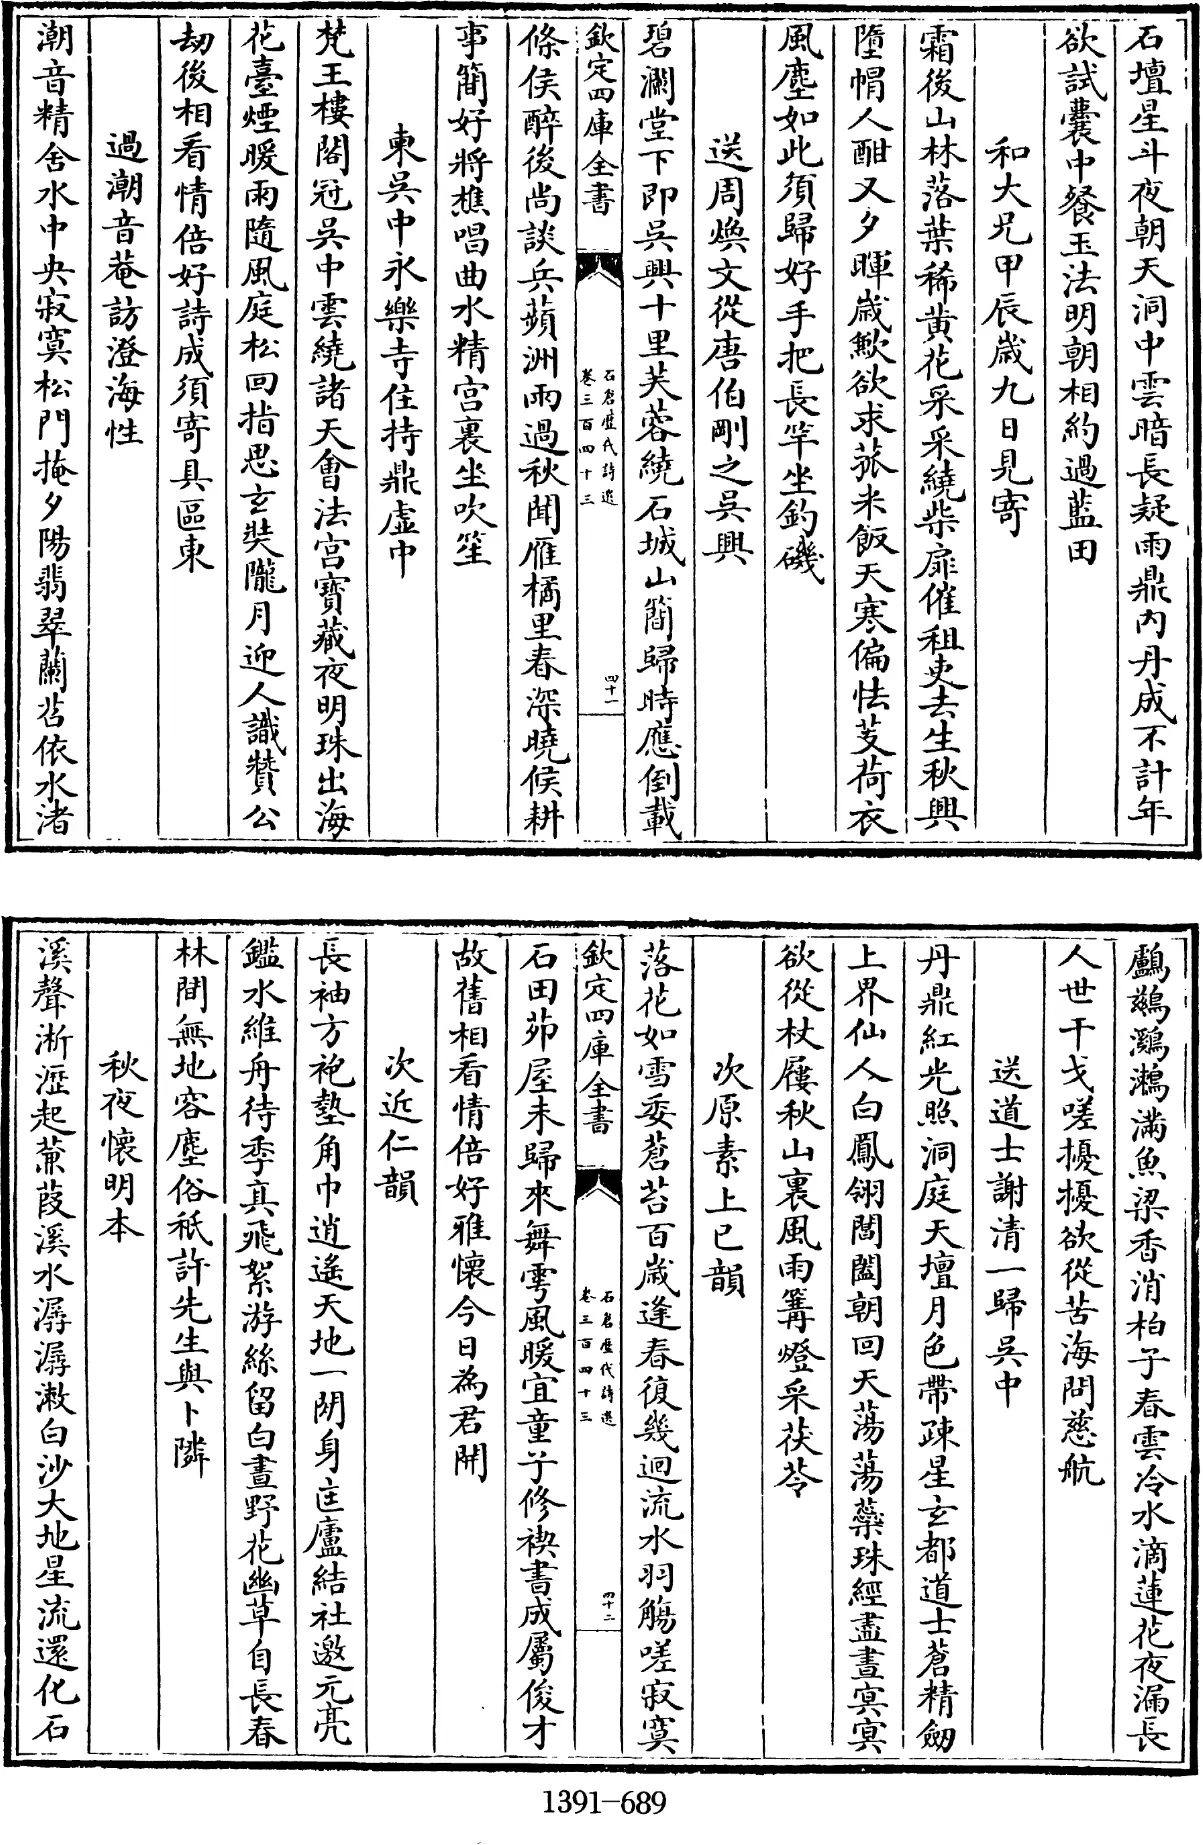 石壇星斗夜朝天洞中雲暗長疑雨鼎内丹成不計年
欲試囊中餐玉法明朝相約過藍田
和大兄甲辰歲九日見寄
霜後山林落葉稀黄花采采繞柴扉催租吏去生秋興
墮帽人酣又夕暉歲歉欲求菰米飯天寒偏怯芰荷衣
風塵如此須歸好手把長竿坐釣磯
送周煥文從唐伯剛之吳興
碧瀾堂下即吳興十里芙蓉繞石城山簡歸時應倒載
欽定四庫全書
石倉歷代詩選
卷三百四十三
四十一
條侯醉後尚談兵蘋洲雨過秋聞雁橘里春深曉候耕
事簡好將樵唱曲水精宫裏坐吹笙
柬吳中永樂寺住持鼎虚中
梵王樓閣冠吳中雲繞諸天會法宫寶藏夜明珠出海
花臺煙暖雨隨風庭松回指思玄奘隴月迎人識贊公
劫後相看情倍好詩成須寄具區東
過潮音菴訪澄海性
潮音精舍水中央寂寞松門掩夕陽翡翠蘭苕依水渚
鸕鷀鸂鶒滿魚梁香消柏子春雲冷水滴蓮花夜漏長
人世干戈嗟擾擾欲從苦海問慈航
送道士謝清一歸吳中
丹鼎紅光照洞庭天壇月色帶疎星玄都道士蒼精劒
上界仙人白鳳翎閶闔朝回天蕩蕩蘂珠經盡晝宾宾
欲從杖屨秋山裏風雨篝燈采茯苓
次原素上已韻
落花如雪委蒼苔百歲逢春復幾迴流水羽觴嗟寂寞
欽定四庫全書
石倉歷代詩選
卷三百四十三
四十二
石田茆屋未歸來舞雩風暖宜童子修禊書成屬俊才
故舊相看情倍好雅懷今日為君開
次近仁韻
長袖方袍墊角巾逍遙天地一閒身匡廬結社邀元亮
鑑水維舟待季真飛絮游絲留白晝野花幽草自長春
林間無地容塵俗秖許先生與卜隣
秋夜懷明本
溪聲淅瀝起蒹葭溪水潺潺漱白沙大地星流還化石
1391-689